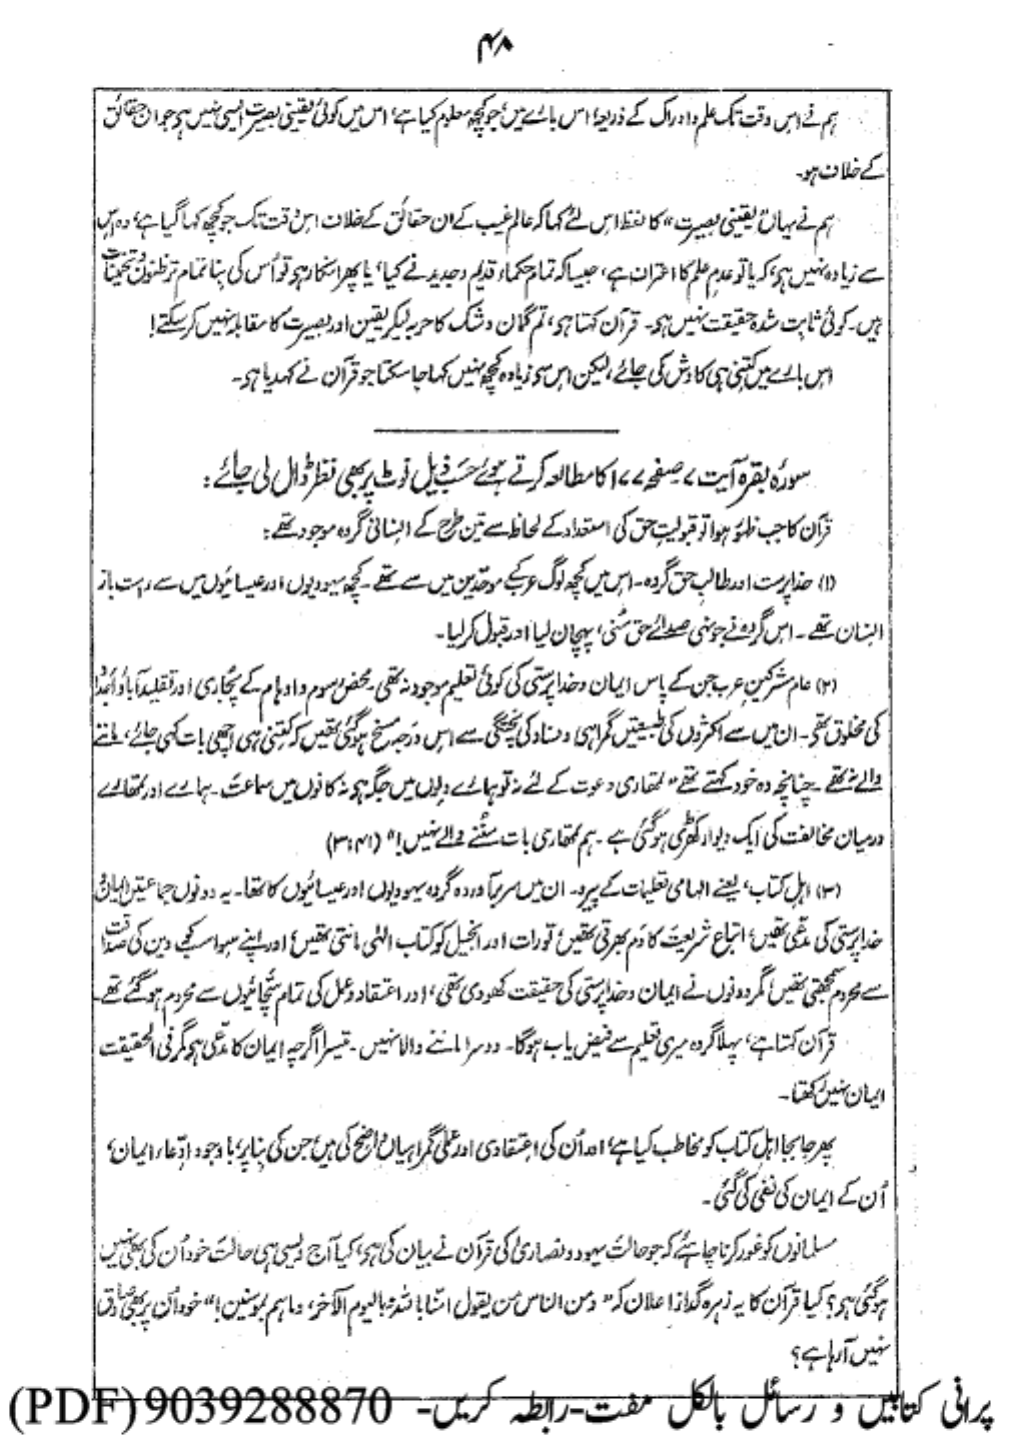 ۴۸
ہم نے اس وقت تک علم و ادراک کے ذریعہ اس بارے میں جو کچھ معلوم کیا ہے، اس میں کوئی یقینی بصیرت ایسی نہیں ہے جو ان حقائق
کے خلاف ہو۔
ہم نے یہاں "یقینی بصیرت" کا لفظ اس لئے کہا کہ عالم غیب کے ان حقائق کے خلاف اس وقت تک جو کچھ کہا گیا ہے، وہ اس
سے زیادہ نہیں ہے، کہ یا تو عدم علم کا اعتراف ہے، جیسا کہ تمام حکماء قدیم و جدید نے کیا، یا پھر انکار ہے تو اُس کی بنا تمام تر ظنون و تخمینات
ہیں۔ کوئی ثابت شدہ حقیقت نہیں ہے۔ قرآن کہتا ہے، تم گمان و شک کا حربہ لیکر یقین اور بصیرت کا مقابلہ نہیں کر سکتے!
اس بارے میں کتنی ہی کاوش کی جائے، لیکن اس سے زیادہ کچھ نہیں کہا جا سکتا جو قرآن نے کہدیا ہے۔
سورۂ بقرہ آیت ۷ صفحہ ۱۷۷ کا مطالعہ کرتے ہوئے حسب ذیل نوٹ پر بھی نظر ڈال لی جائے:
قرآن کا جب ظہور ہوا تو قبولیتِ حق کی استعداد کے لحاظ سے تین طرح کے انسانی گروہ موجود تھے:
(۱) خدا پرست اور طالب حق گروہ۔ اس میں کچھ لوگ عرب کے موحدین میں سے تھے۔ کچھ یہودیوں اور عیسائیوں میں سے راست باز
انسان تھے۔ اس گروہ نے جونہی صدائے حق سُنی، پہچان لیا اور قبول کر لیا۔
(۲) عام مشرکین عرب جن کے پاس ایمان و خدا پرستی کی کوئی تعلیم موجود نہ تھی۔ محض رسوم و اوہام کے پجاری اور تقلید آباؤ اجداد
کی مخلوق تھی۔ ان میں سے اکثروں کی طبیعتیں گمراہی و فساد کی پختگی سے اس درجہ مسخ ہو گئی تھیں کہ کتنی ہی اچھی بات کہی جائے، ماننے
والے نہ تھے۔ چنانچہ وہ خود کہتے تھے "تمھاری دعوت کے لئے نہ تو ہمارے دلوں میں جگہ ہے نہ کانوں میں سماعت۔ ہمارے اور تمھارے
درمیان مخالفت کی ایک دیوار کھڑی ہو گئی ہے۔ ہم تمھاری بات سُننے والے نہیں!" (۳:۴۱)
(۳) اہل کتاب، یعنے الہامی تعلیمات کے پیرو۔ ان میں سربرآوردہ گروہ یہودیوں اور عیسائیوں کا تھا۔ یہ دونوں جماعتیں ایمان
خدا پرستی کی مدعی تھیں، اتباع شریعت کا دم بھرتی تھیں، تورات اور انجیل کو کتاب الٰہی مانتی تھیں، اور اپنے سوا سب کو دین کی صداقت
سے محروم سمجھتی تھیں، مگر دونوں نے ایمان و خدا پرستی کی حقیقت کھو دی تھی، اور اعتقاد و عمل کی تمام سچائیوں سے محروم ہو گئے تھے۔
قرآن کہتا ہے، پہلا گروہ میری تعلیم سے فیض یاب ہوگا۔ دوسرا ماننے والا نہیں۔ تیسرا اگرچہ ایمان کا مدعی ہے، مگر فی الحقیقت
ایمان نہیں رکھتا۔
پھر جا بجا اہل کتاب کو مخاطب کیا ہے، اور اُن کی اعتقادی اور عملی گمراہیاں واضح کی ہیں، جن کی بنا پر، باوجود ادعاء ایمان،
اُن کے ایمان کی نفی کی گئی۔
مسلمانوں کو غور کرنا چاہئے کہ جو حالت یہود و نصاریٰ کی قرآن نے بیان کی ہے، کیا آج ویسی ہی حالت خود اُن کی بھی نہیں
ہو گئی ہے؟ کیا قرآن کا یہ زہرہ گداز اعلان کہ "ومن الناس من یقول امنا باللہ وبالیوم الآخر، وما ہم بمومنین!" خود اُن پر بھی صادق
نہیں آ رہا ہے؟
پرانی کتابیں و رسائل بالکل مفت۔رابطہ کریں۔ 9039288870(PDF)